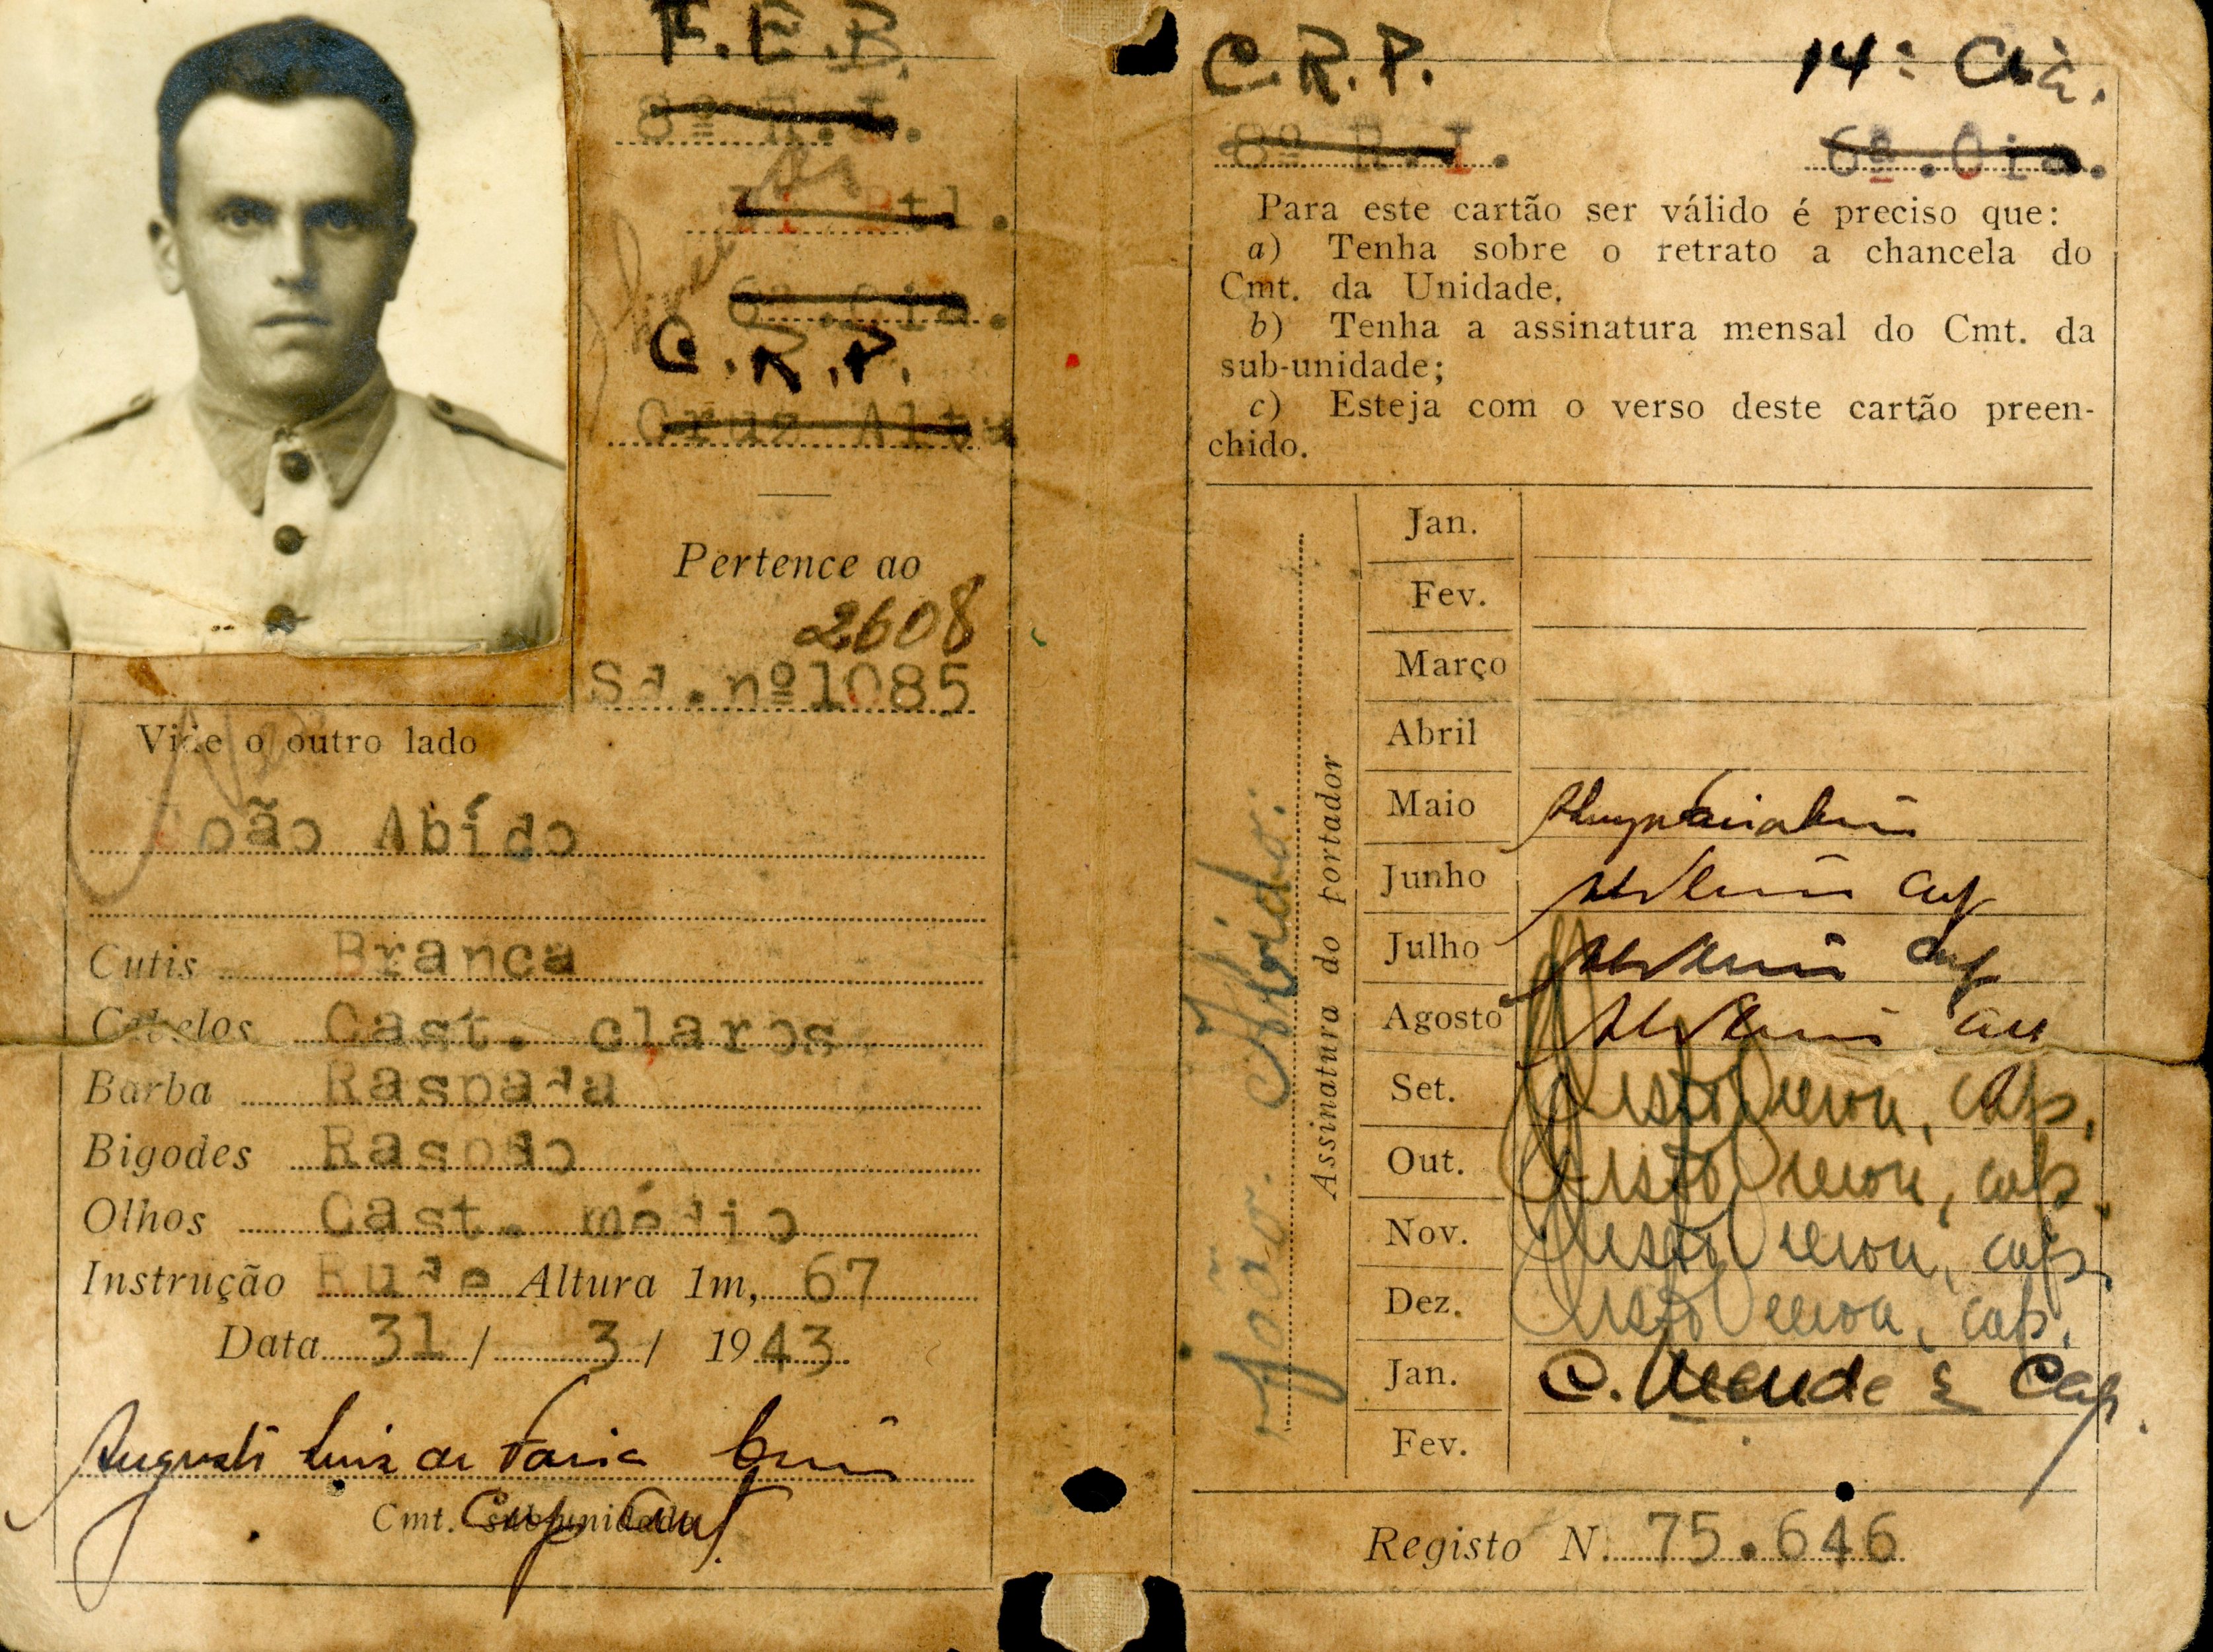 F.E.B.
8º R.I.
II Btl.
6ª.Cia.
C.R.P.
Cruz Alta
Pertence ao
2608
Sd.nº1085
Vide o outro lado
João Abído
Cutis Branca
Cabelos Cast. claros
Barba Raspada
Bigodes Raspado
Olhos Cast. médio
Instrução Rude Altura 1m, 67
Data 31 / 3 / 1943
Augusto Luiz de Faria
Cmt. sub-unidade
C.R.P. 14ª Cia.
8º R.I. 6ª.Cia.
Para este cartão ser válido é preciso que:
a) Tenha sobre o retrato a chancela do
Cmt. da Unidade.
b) Tenha a assinatura mensal do Cmt. da
sub-unidade;
c) Esteja com o verso deste cartão preen-
chido.
João. Abído.
Assinatura do portador
Jan.
Fev.
Março
Abril
Maio
Junho Cap
Julho Cap
Agosto Cap
Set. cap.
Out. cap.
Nov. cap.
Dez. cap.
Jan. C. Mendes Cap
Fev.
Registo N. 75.646